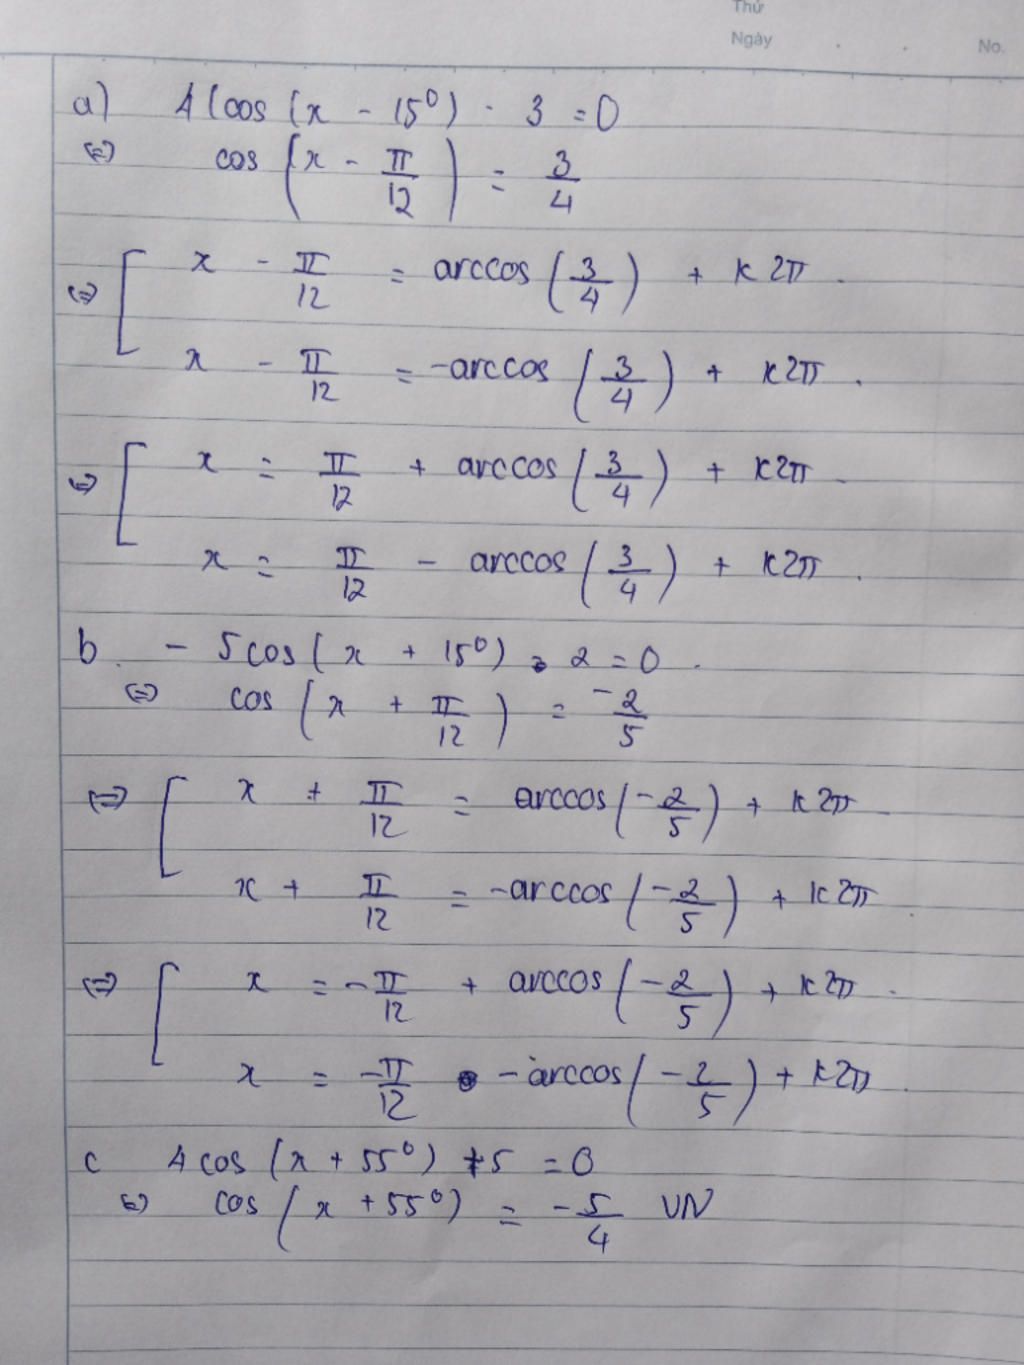 Thứ
Ngày . . No.
a) 4(cos (x - 15⁰) - 3 = 0
⇔ cos (x - π/12) = 3/4
⇔ [ x - π/12 = arccos (3/4) + k2π.
x - π/12 = -arccos (3/4) + k2π.
⇔ [ x = π/12 + arccos (3/4) + k2π.
x = π/12 - arccos (3/4) + k2π.
b. - 5cos (x + 15⁰) - 2 = 0.
⇔ cos (x + π/12) = -2/5
⇔ [ x + π/12 = arccos (-2/5) + k2π.
x + π/12 = -arccos (-2/5) + k2π.
⇔ [ x = -π/12 + arccos (-2/5) + k2π.
x = -π/12 - arccos (-2/5) + k2π.
c 4cos (x + 55⁰) + 5 = 0
⇔ cos (x + 55⁰) = -5/4 VN